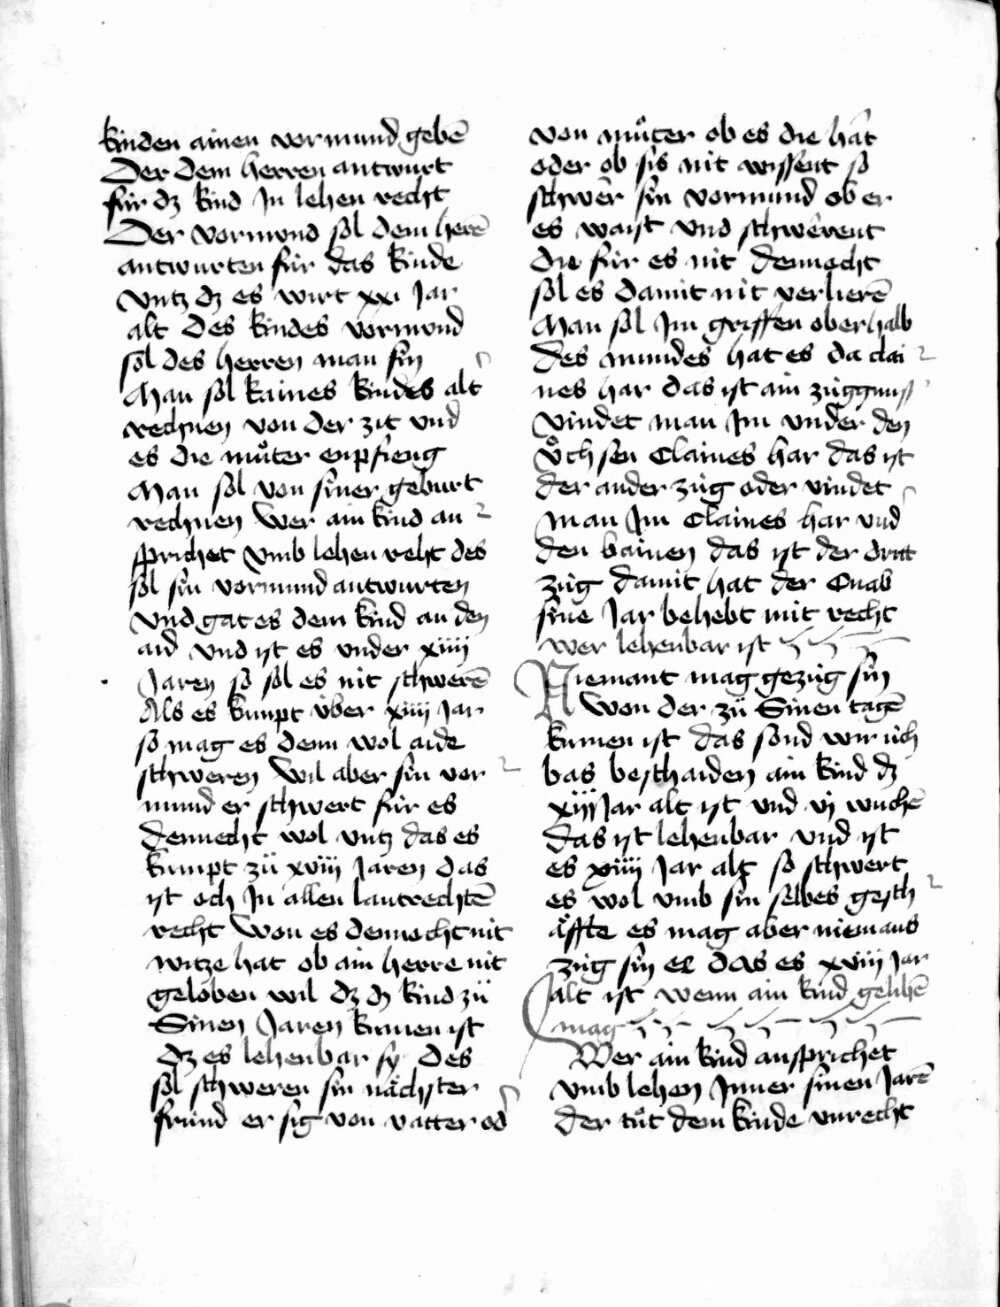 kinden ainen vormund gebē
Der dem herren antwurt
für dz kind In lehen recht
Der vormund sol dem herē
antwurten für das kinde
vntz dz es wirt xxi Jar
alt Des kindes vormund
sol des herren man sin
Man sol kaines kindes alt
rechnen von der zit vnd
es die můter enpfieng
Man sol von siner geburt
rechnen Wer ain kind an
sprichet vmb lehen reht des
sol sin vormund antwurten
vnd gat es dem kind an den
aid vnd ist es vnder xiiii
Jaren so sol es nit schwerē
Als es kumpt über xiiii Jar
so mag es denn wol aide
schweren Wil aber sin vor
mund er schwert für es
dennecht wol vntz das es
kumpt zü xviii Jaren das
ist och In allen lantrechtē
recht Won es dennocht nit
witze hat ob ain herre nit
geloben wil dz dz kind zü
Sinen Jaren kumen ist
dz es lehenbar sy Des
sol schweren sin nächster
fründ er sig von vatter od
von můter ob es die hat
oder ob sis nit wissent so
schwer sin vormund ob er
es waist vnd schwerent
die für es nit dennocht
sol es damit nit verlierē
Man sol Im griffen oberhalb
des mundes hat es da clai
nes har das ist ain zuggnust
vindet man Im vnder den
v̊chsen Claines har das ist
der ander züg oder vindet
man Im Claines har vnd
den bainen das ist der dritt
züg damit hat der Cnab
sine Jar behebt mit recht
wer lehenbar ist
Niemant mag gezüg sin
Won der zü Sinen tagē
kumen ist das sond wir üch
bas beschaiden ain kind dz
xiii Jar alt ist vnd vi wuchē
das ist lehenbar vnd ist
es xiiii Jar alt so schwert
es wol vmb sin selbes gesch
äffte es mag aber niemans
züg sin ee das es xviii Jar
alt ist wenn ain kind gelihē
mag
Wer ain kind ansprichet
vmb lehen Inner sinen Jarē
der tůt dem kinde vnrecht